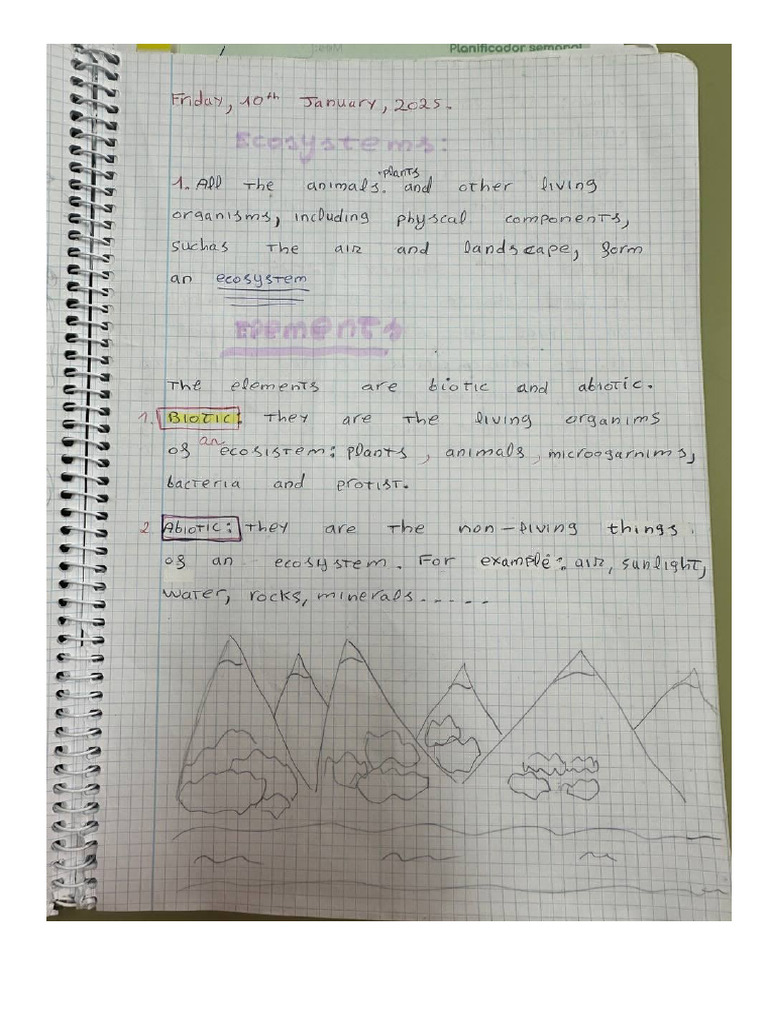 Planificador semanal
Friday, 10th January, 2025.
Ecosystems:
1. All the animals. plants and other living
organisms, including physcal components,
suchas the air and landscape, form
an ecosystem
Elements
The elements are biotic and abiotic.
1. Biotic: They are the living organims
of an ecosistem: plants, animals, microogarnims,
bacteria and protist.
2 Abiotic: They are the non-living things.
of an ecosystem. For example: air, sunlight,
water, rocks, minerals.....